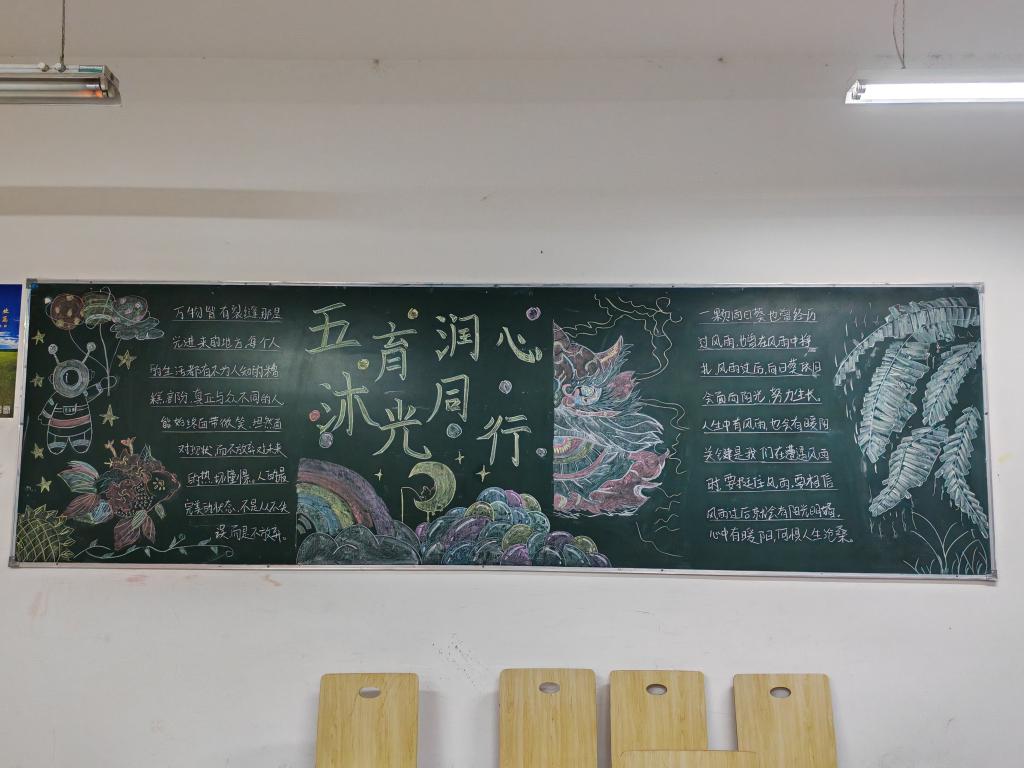 万物皆有裂缝那是
光进来的地方,每个人
的生活都有不为人知的糟
糕部分,真正与众不同的人
能始终面带微笑,坦然面
对现状,而不放弃对未来
的热切憧憬,人 最
完美的状态,不是从不失
误而是不放弃。
五育润心
沐光同行
一颗向日葵也需经历
过风雨,也曾在风雨中挣
扎,风雨过后,向日葵依旧
会面向阳光,努力生长,
人生中有风雨,也会有暖阳
关键是我们在遭遇风雨
时,要抵住风雨,要相信
风雨过后就会有阳光明媚,
心中有暖阳,何惧人生沧桑。